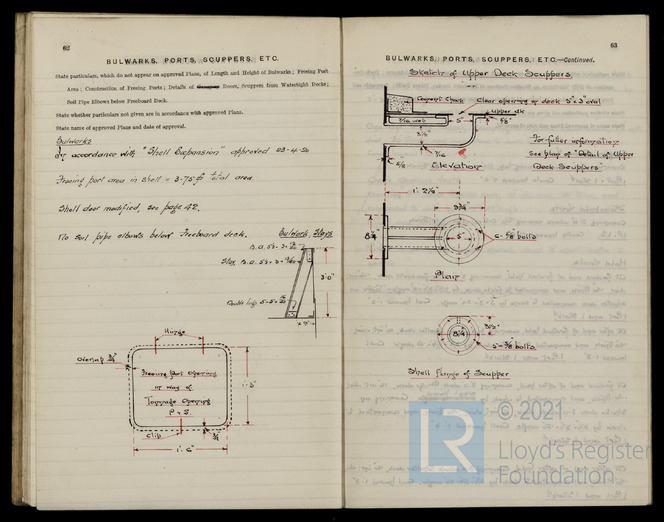 62
BULWARKS, PORTS, SCUPPERS, ETC.
State particulars, which do not appear on approved Plans, of Length and Height of Bulwarks; Freeing Port
Area; Construction of Freeing Ports; Details of Rooms, Scuppers from Watertight Decks;
Soil Pipe Elbows below Freeboard Deck.
State whether particulars not given are in accordance with approved Plans.
State name of approved Plans and date of approval.
Bulwarks
In accordance with "Shell Expansion" approved 23-4-50
Freeing port area in shell = 3.75 total area.
Shell door modified, see page 42.
No soil pipe elbows below Freeboard deck.
Bulwark Stays
3'-0"
Hinge
Overlap
Freeing Port Opening
in way of
Tonnage Opening
P & S.
Clip
1'-6"
63
BULWARKS, PORTS, SCUPPERS, ETC.—Continued.
Sketch of Upper Deck Scuppers
Cement Chock
Clear opening in deck 5" x 3" oval
Upper dk
5"
5/8"
7/16
Elevation
For fuller information
See plan of "Detail of Upper
Deck Scuppers"
5"
6 - 5/8" bolts
Plan
5 - 5/8" bolts
Shell flange of Scupper
LR
© 2021
Lloyd's Register
Foundation